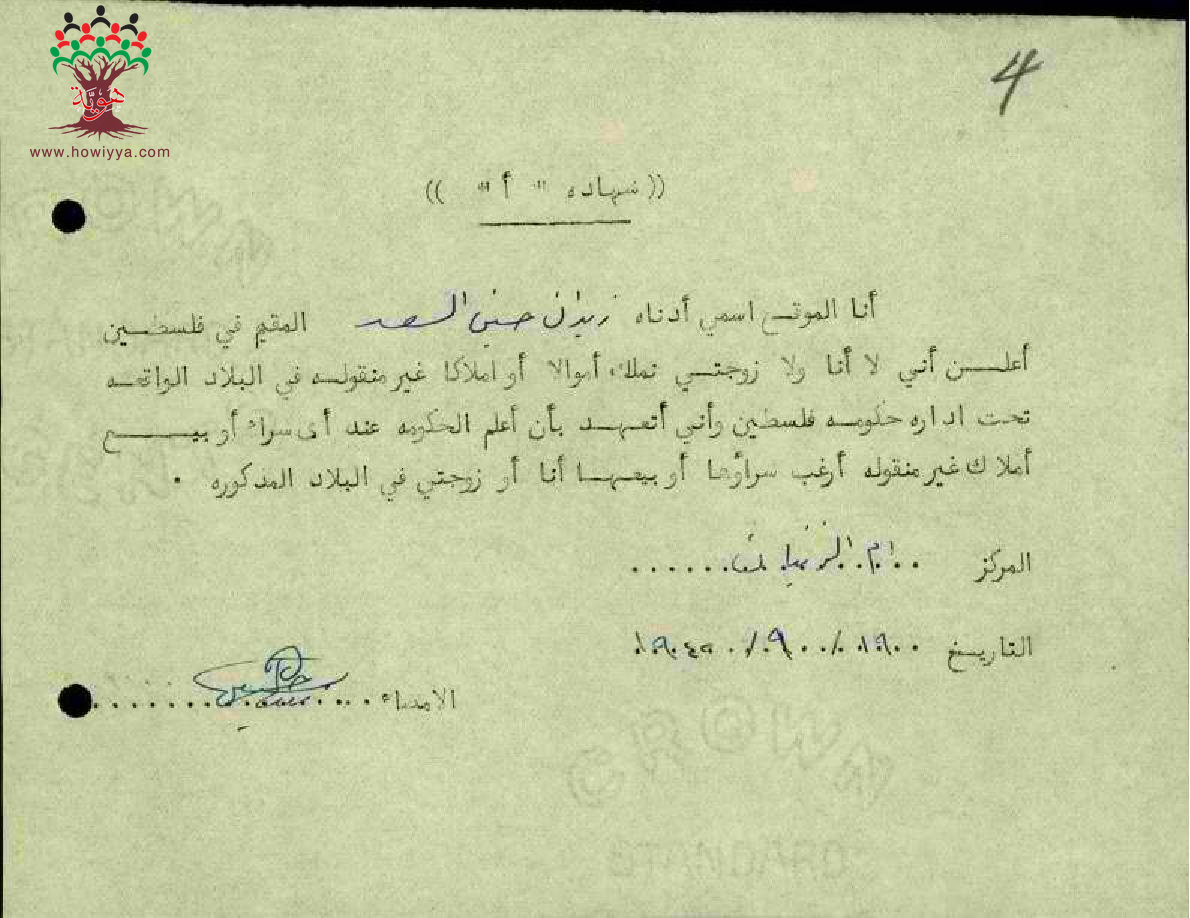 هويّة
www.howiyya.com
4
(( شهاده " أ " ))
أنا الموقع اسمي أدناه زيدان حسين السعد المقيم في فلسطين
أعلن أني لا أنا ولا زوجتي نملك أموالا أو املاكا غير منقوله في البلاد الواقعه
تحت اداره حكومه فلسطين وأني أتعهد بأن أعلم الحكومه عند أى سراء أو بيع
أملاك غير منقوله أرغب سراؤها أو بيعها أنا أو زوجتي في البلاد المذكوره .
المركز ..ام الزينات......
التاريخ
الامضاء
CROWN